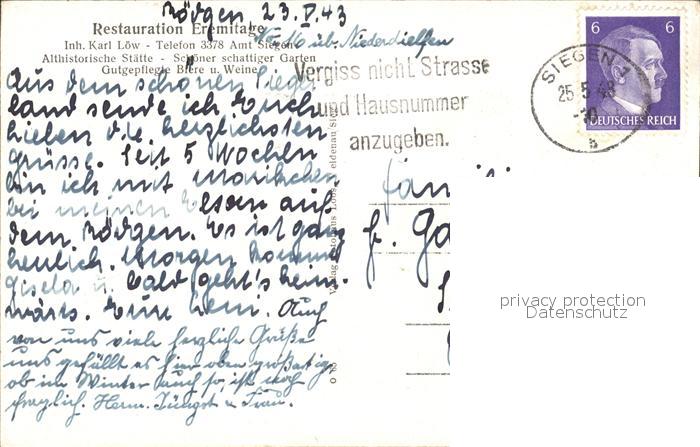 Rödgen, 23.V.43
Restauration Eremitage
No 16 üb. Niederdielfen
Inh. Karl Löw - Telefon 3378 Amt Siegen
Althistorische Stätte - Schöner schattiger Garten
Gutgepflegte Biere u. Weine
Vergiss nicht Strasse
und Hausnummer
anzugeben.
SIEGEN 1
25.5.43
b
6 6
DEUTSCHES REICH
Aus dem schönen Sieger
land sende ich Euch
lieben die herzlichsten
Grüsse. Seit 5 Wochen
bin ich mit
bei meinen Eltern auf
dem Rödgen. Es ist ganz
herrlich. Morgen kommt
Gisela u. bald geht's heim-
wärts. Eure Leni. Auch
von uns viele herzliche Grüße
uns gefällt es hier oben großartig
ob im Winter auch so, ist noch
fraglich. Herm. Jüngst u. Frau.
Fam
privacy protection
Datenschutz